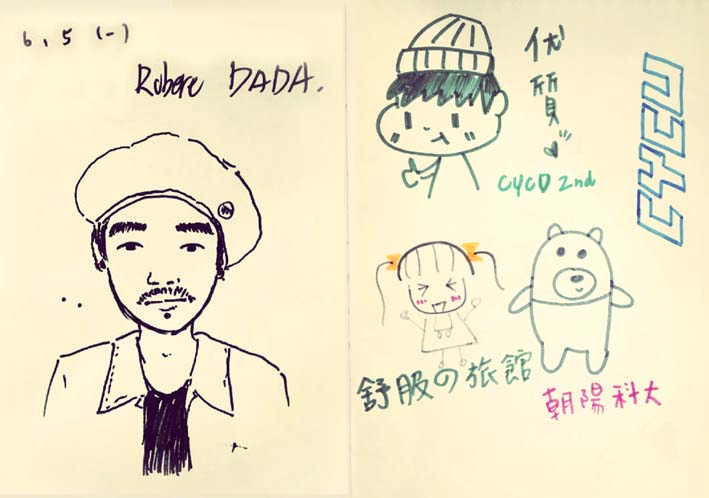 6, 5 (一)
Robere DADA.
优
質
CYCU
CYCD 2nd
舒服の旅館
朝陽科大